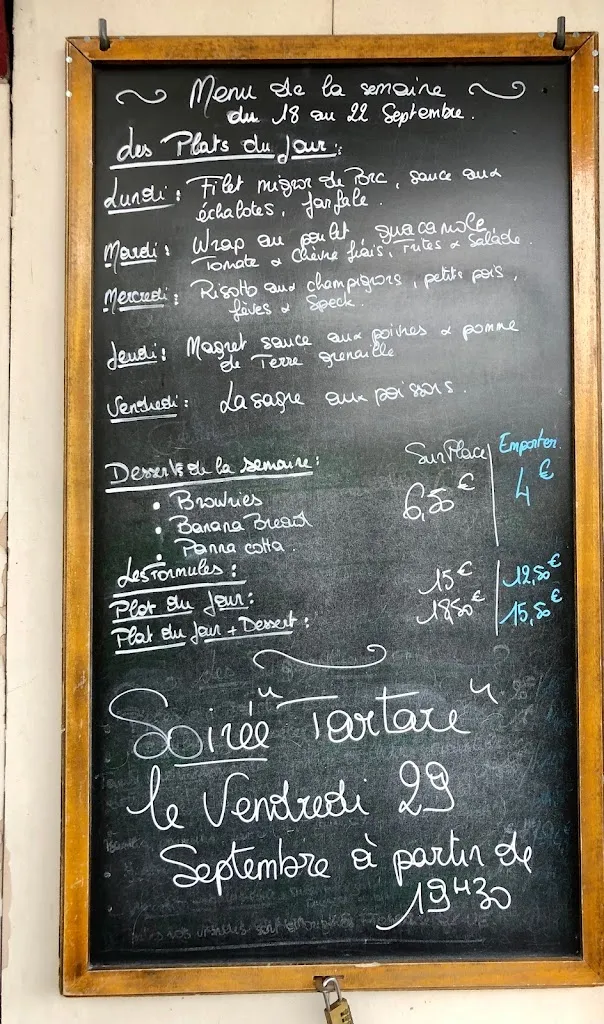 Menu de la semaine
du 18 au 22 Septembre.
des Plats du Jour :
Lundi : Filet mignon de Porc, sauce aux
échalotes, farfale.
Mardi : Wrap au poulet, guacamole,
Tomate & Chèvre frais, Frites & Salade.
Mercredi : Risotto aux champignons, petits pois,
fèves & Speck.
Jeudi : Magret sauce aux poivres & pomme
de Terre grenaille
Vendredi : Lasagne aux poissons.
Sur Place Emporter
Desserts de la semaine :
• Brownies 6,50€ 4€
• Banana Bread
• Panna cotta.
Les Formules :
Plat du Jour : 15€ 12,50€
Plat du Jour + Dessert : 18,50€ 15,50€
Soirée "Tartare"
le Vendredi 29
Septembre à partir de
19H30